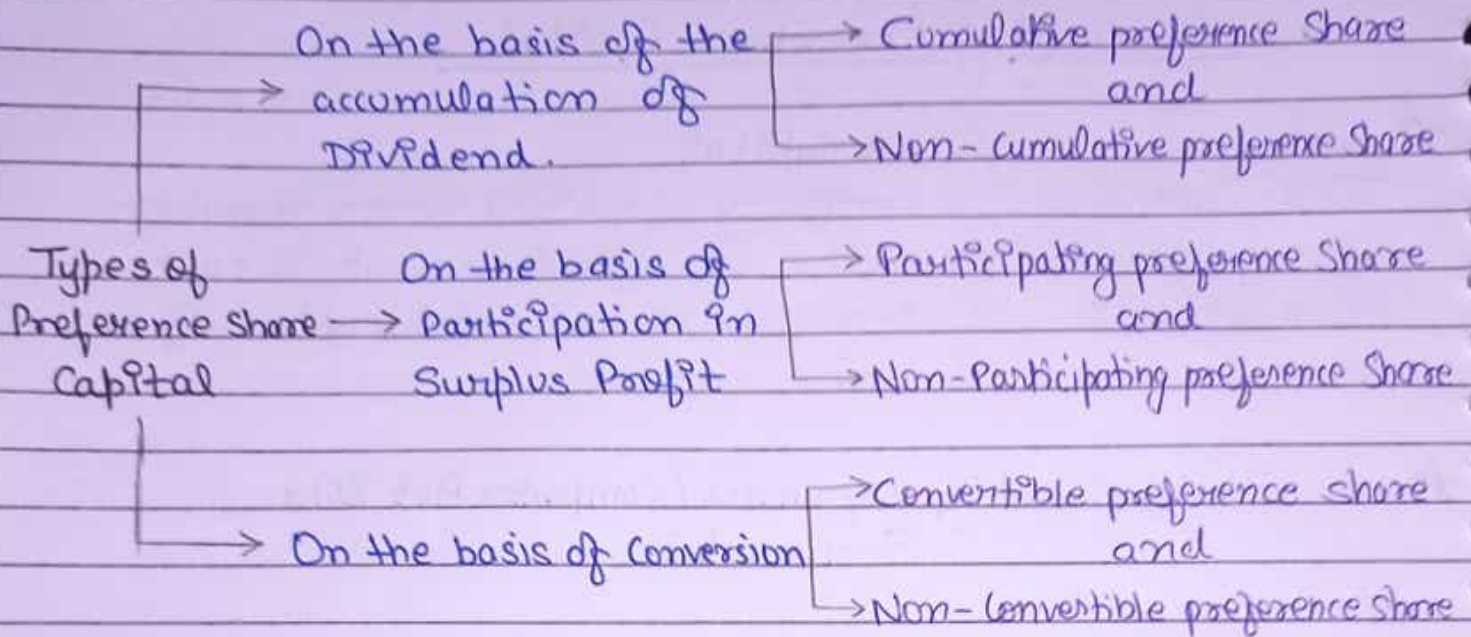 On the basis of the
accumulation of
Dividend.
Cumulative preference Share
and
Non-Cumulative preference Share
Types of
Preference Share
Capital
On the basis of
Participation in
Surplus Profit
Participating preference Share
and
Non-Participating preference Share
On the basis of Conversion
Convertible preference share
and
Non-Convertible preference share